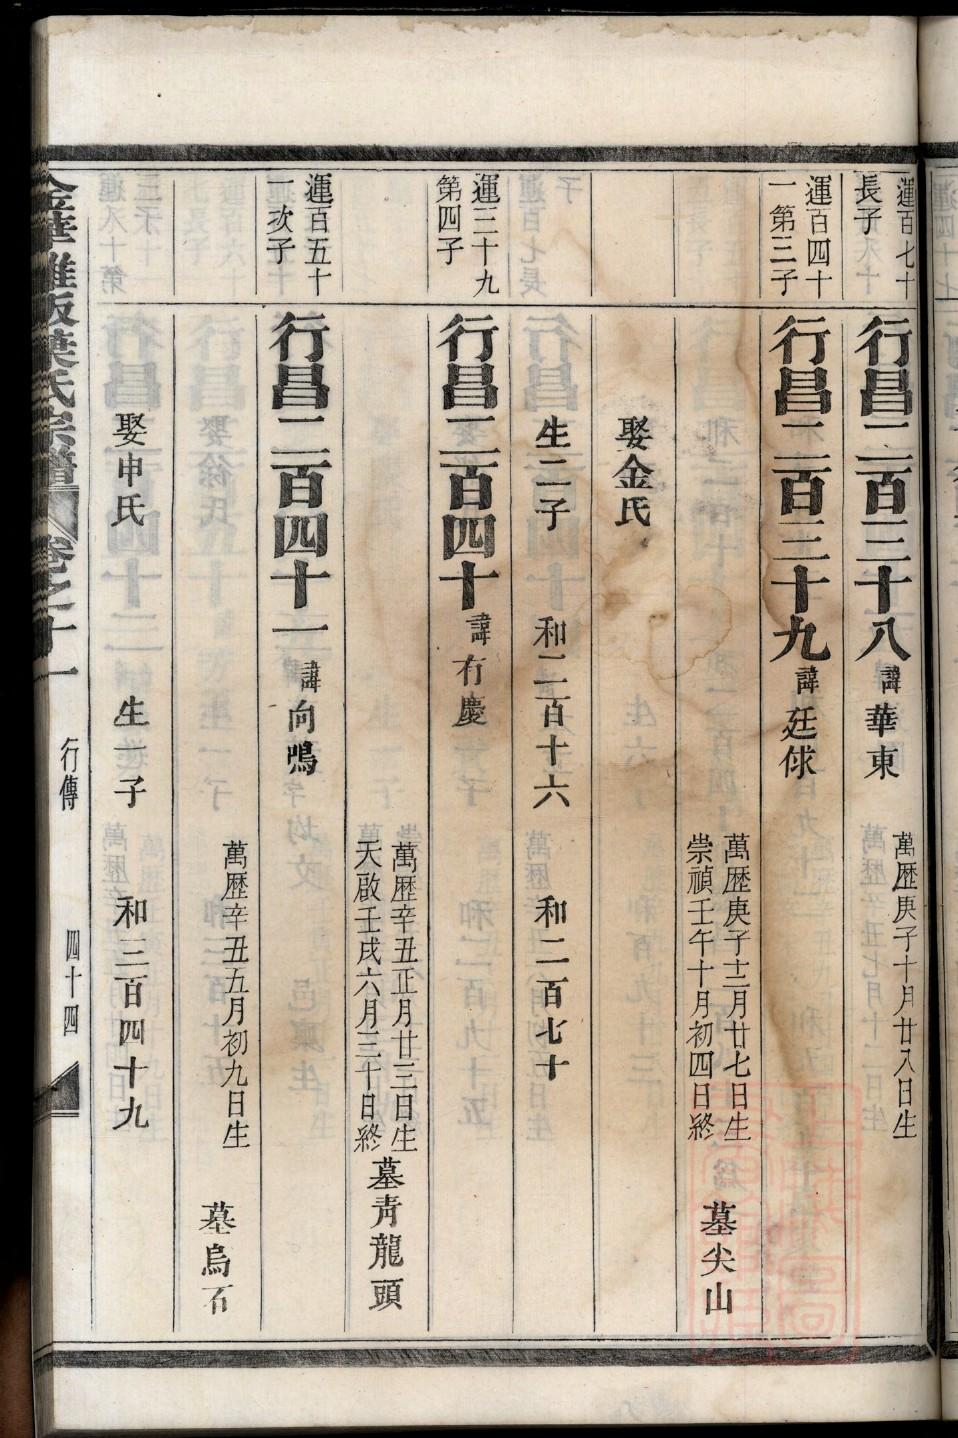 運百七十
長子
行昌二百三十八
諱華東
萬歷庚子十月廿八日生
運百四十
一第三子
行昌二百三十九
諱廷俅
萬歷庚子十二月廿七日生
崇禎壬午十月初四日終
墓尖山
娶金氏
生二子 和二百十六 和二百七十
運三十九
第四子
行昌二百四十
諱有慶
萬歷辛丑正月廿三日生
天啟壬戌六月三十日終
墓青龍頭
運百五十
一次子
行昌二百四十一
諱向鳴
萬歷辛丑五月初九日生
墓烏石
娶申氏 生一子 和三百四十九
金華 氏宗譜 卷之十一 行傳 四十四